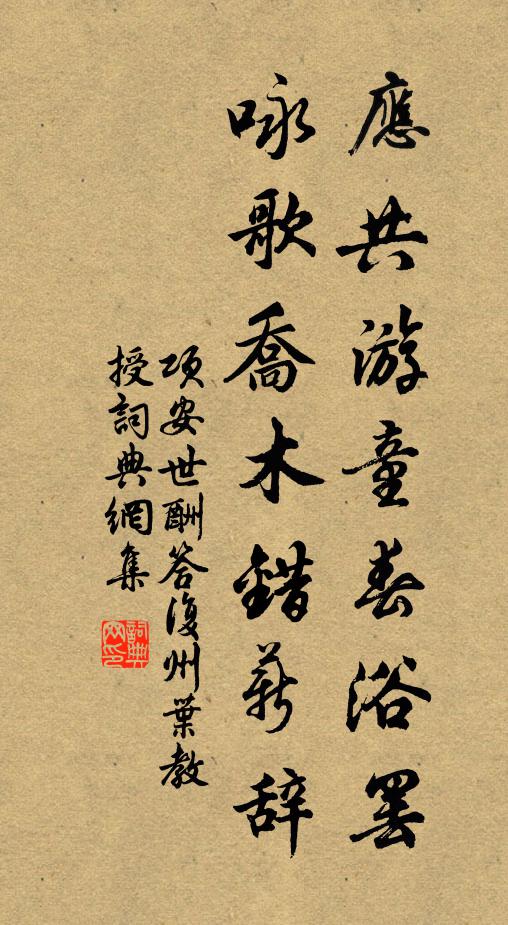 應共游童春浴罷
咏歌喬木錯薪辭
項安世酬答復州葉教
授詞典網集
詞典網印